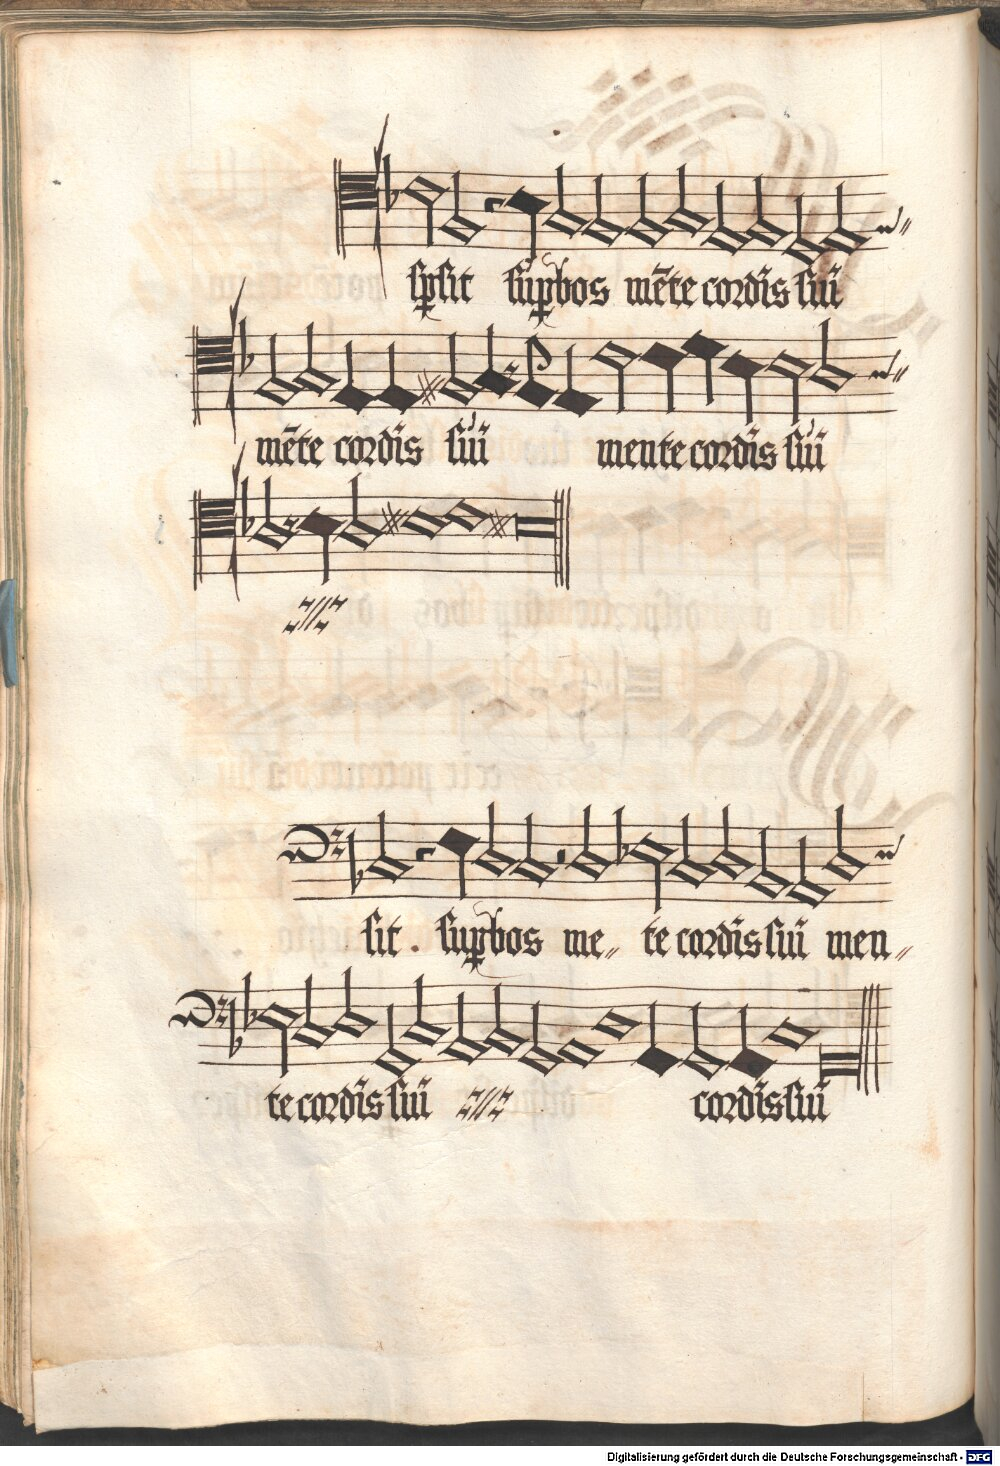 sp̱sit sup̱bos mēte cordīs suū
mēte cordīs suū mente cordīs suū
sit . sup̱bos me〃 te cordīs suū men〃
te cordīs suū cordīs suū
Digitalisierung gefördert durch die Deutsche Forschungsgemeinschaft - DFG